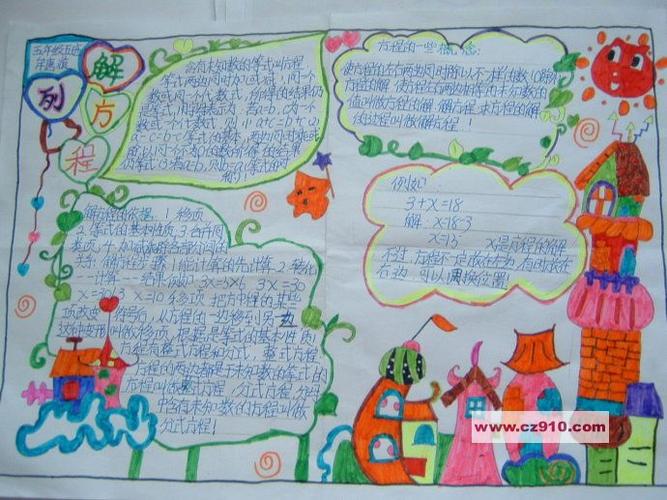 五年级五班
解
列
方
程
含有未知数的等式叫方程
等式两边同时加(或减)同一个
数或同一个代数式,所得的结果仍
是等式。用字母表示为:若a=b,c为一个
数或一个代数式。则:1 a+c=b+c 2
a-c=b-c 等式的基本
方程的一些概念:
使方程的左右两边
方程的解 使方程左右两边相等的未知数的
值叫做方程的解 解方程:求方程的解
的过程叫做解方程!
例如:
3+x=18
解: x=18-3
x=15 x是方程的解
不过,方程不一定放在左边,有时放在
右边,可以调换位置!
解方程的依据:1.移项
2.等式的基本性质 3.合并同
类项 4.加减乘除各部分间的
关系 解方程步骤 1能计算的先计算 2.转化
—计算—结果 例如:3x=5x6 3x=30
x=30÷3 x=10 移项:把方程的某些
项改变符号后,从方程的一边移到另一边
这种变形叫做移项,根据是等式的基本性质1
方程有整式方程和分式 整式方程
方程的两边都是未知数的等式的
方程叫做整式方程 分式方程:分母
中含有未知数的方程叫做
分式方程!
www.cz910.com